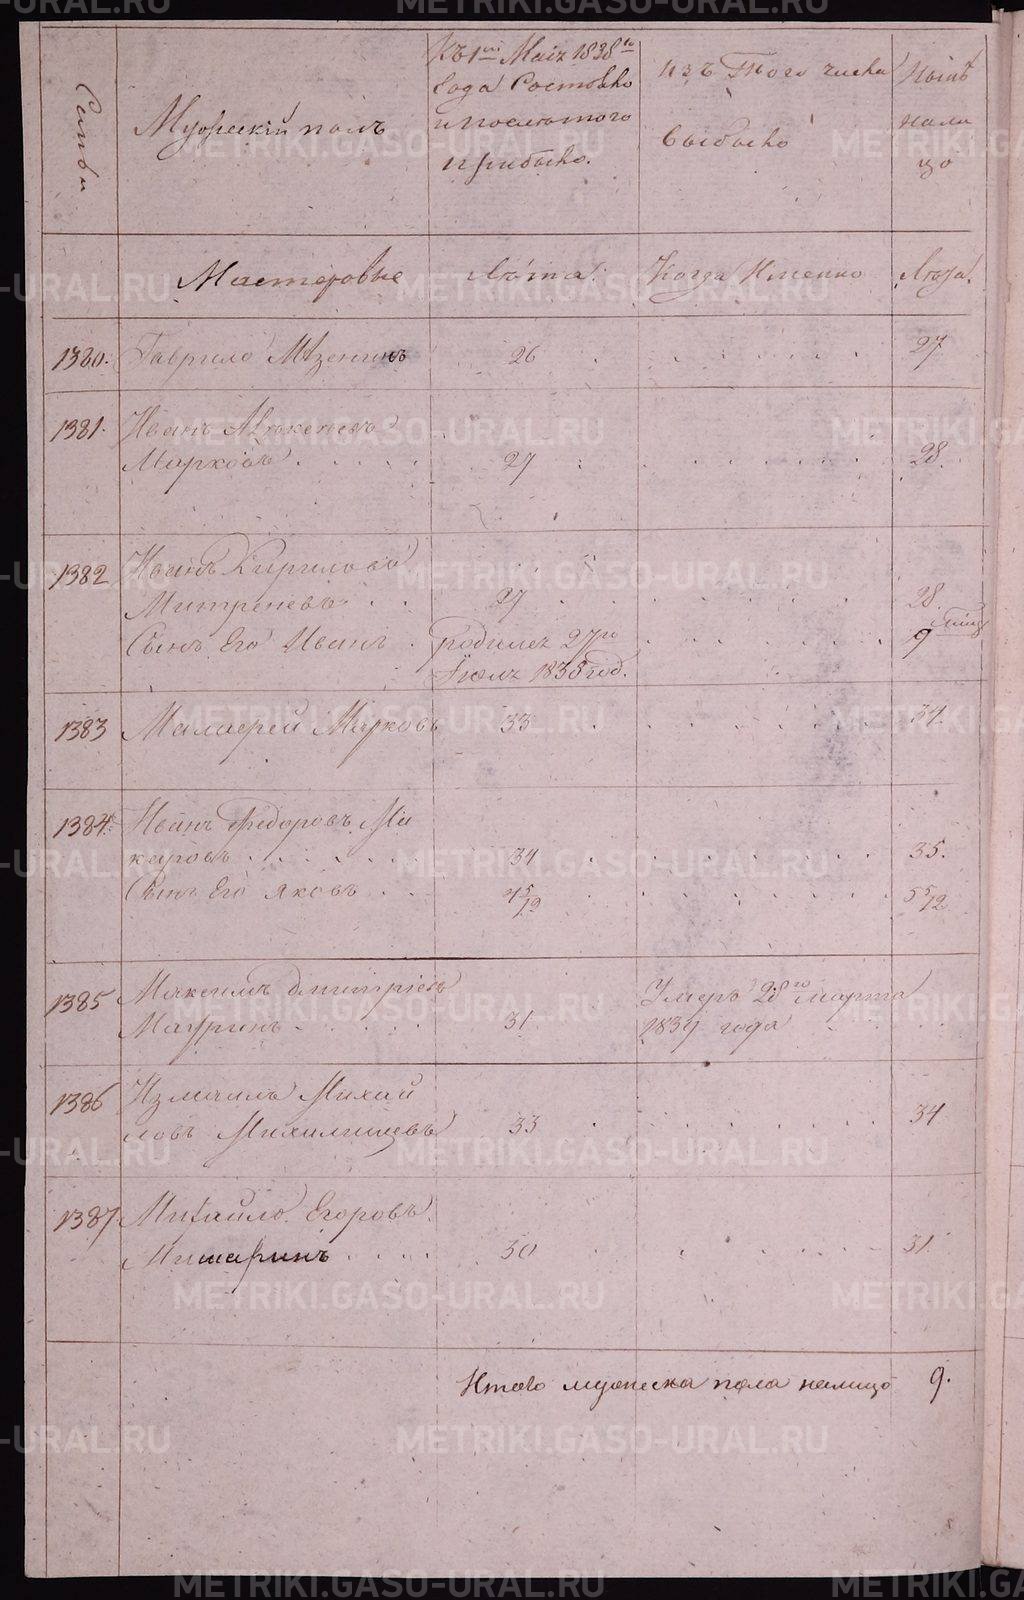 Семьи
Мужескій полъ
Къ 1му Маія 1838го
Года Состояло
и послѣ того
прибыло.
изъ того числа
выбыло
Нынѣ
нали
цо
Мастеровые
Лѣта.
Когда Именно
Лѣта.
1380. Гаврило 26 . . . . . . 27
1381. Иванъ
Марковъ . . . . . 27 . . . . . . 28.
1382 Иванъ Кириловъ
Митреневъ . . 27 . . . . . . 28.
Сынъ Его Иванъ . родился 27го . . . . . . 9 мѣц
Іюля 1838 год.
1383 Марковъ 33 . . . . . . 34.
1384. Иванъ Федоровъ Ма
каровъ . . . . . 34 . . . . . . 35.
Сынъ Его Яковъ . . 4 5/12 . . . . . . 5 5/12
1385 Максимъ Дмитріевъ Умеръ 28го марта
Мауринъ . . . . . 31 1839 года
1386 Измаилъ Михай
ловъ 33 . . . . . . 34
1387. Михайло Егоровъ
Мишаринъ . . . . 30 . . . . . . 31.
Итого мужеска пола налицо 9.
METRIKI.GASO-URAL.RU